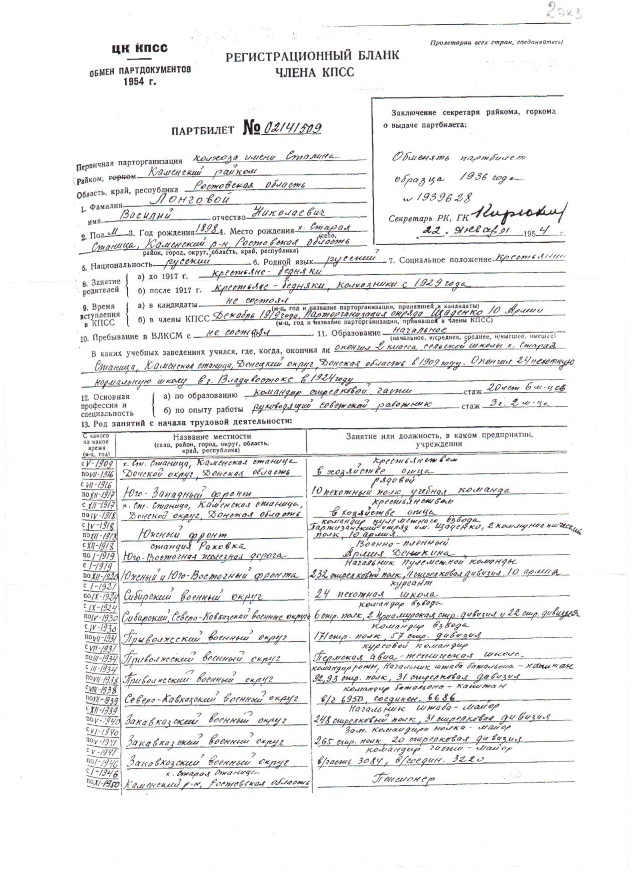 2 экз
ЦК КПСС
ОБМЕН ПАРТДОКУМЕНТОВ
1954 г.
Пролетарии всех стран, соединяйтесь!
РЕГИСТРАЦИОННЫЙ БЛАНК
ЧЛЕНА КПСС
ПАРТБИЛЕТ № 02141509
Заключение секретаря райкома, горкома
о выдаче партбилета:
Обменять партбилет
образца 1936 года
№ 1939628
Секретарь РК, ГК
22 января 1954 г.
Первичная парторганизация колхоза имени Сталина
Райком, горком Каменский райком
Область, край, республика Ростовская область
1. Фамилия Лонговой
имя Василий отчество Николаевич
2. Пол М 3. Год рождения 1898 4. Место рождения х. Старая
село,
Станица, Каменский р-н, Ростовская область
район, город, округ, область, край, республика)
5. Национальность русский 6. Родной язык русский 7. Социальное положение крестьянин
8. Занятие родителей
а) до 1917 г. крестьяне-бедняки
б) после 1917 г. крестьяне-бедняки, колхозники с 1929 года
9. Время вступления в КПСС
а) в кандидаты не состоял
(м-ц, год и название парторганизации, принявшей в кандидаты)
б) в члены КПСС Декабрь 1919 года, Парторганизация отряда Щаденко 10 Армии
(м-ц, год и название парторганизации, принявшей в члены КПСС)
10. Пребывание в ВЛКСМ с не состоял 11. Образование начальное
(начальное, н/среднее, среднее, н/высшее, высшее)
В каких учебных заведениях учился, где, когда, окончил ли окончил 2 класса сельской школы х. Старая
Станица, Каменская станица, Донецкий округ, Донская область в 1909 году. Окончил 24 пехотную
нормальную школу в г. Владивостоке в 1924 году
12. Основная профессия и специальность
а) по образованию командир стрелковой части стаж 20 лет 6 м-цев
б) по опыту работы руководящий советской работник стаж 3 г. 2 м-ца
13. Род занятий с начала трудовой деятельности:
С какого по какое время (м-ц, год)
Название местности
(село, район, город, округ, область, край, республика)
Занятие или должность, в каком предприятии, учреждении
с V-1909 х. Ст. Станица, Каменская станица крестьянством
по VII-1916 Донской округ, Донская область в хозяйстве отца
с VII-1916 рядовой
по XII-1917 Юго-Западный фронт 10 пехотный полк, учебная команда
с XII-1917 х. Ст. Станица, Каменская станица, крестьянством
по IV-1918 Донской округ, Донская область в хозяйстве отца
с IV-1918 командир пулеметного взвода
по XII-1918 Южный фронт Партизанский отряд им. Щаденко, 2 коммунистический полк, 10 армия
с XII-1918 станция Раковка Военно-пленный
по I-1919 Юго-Восточная железная дорога Армия Деникина
с I-1919 Начальник пулеметной команды
по XII-1920 Южный и Юго-Восточный фронта 232 стрелковый полк, стрелковая дивизия, 10 армия
с I-1921 курсант
по IX-1924 Сибирский военный округ 24 пехотная школа
с IX-1924 командир взвода
по IV-1930 Сибирский, Северо-Кавказской военные округа 6 стр. полк, 2 Приамурская стр. дивизия и 22 стр. дивизия
с IV-1930 командир взвода
по VII-1931 Приволжский военный округ 171 стр. полк, 57 стр. дивизия
с VII-1931 курсовой командир
по III-1934 Приволжский военный округ Пермская авиа-техническая школа
с III-1934 командир роты, Начальник штаба батальона - капитан
по VIII-1938 Приволжский военный округ 92, 93 стр. полк, 31 стрелковая дивизия
с VIII-1938 командир батальона - капитан
по XII-1939 Северо-Кавказский военный округ в/ч 6950 соединен. 6686
с XII-1939 Начальник штаба - майор
по V-1940 Закавказский военный округ 248 стрелковый полк, 31 стрелковая дивизия
с VI-1940 Зам. командира полка - майор
по V-1941 Закавказский военный округ 265 стр. полк, 20 стрелковая дивизия
с V-1941 командир части - майор
по I-1946 Закавказский военный округ в/часть 3084, в/соедин. 3220
с I-1946 х. Старая станица
по XI-1950 Каменский р-н, Ростовская область Пенсионер